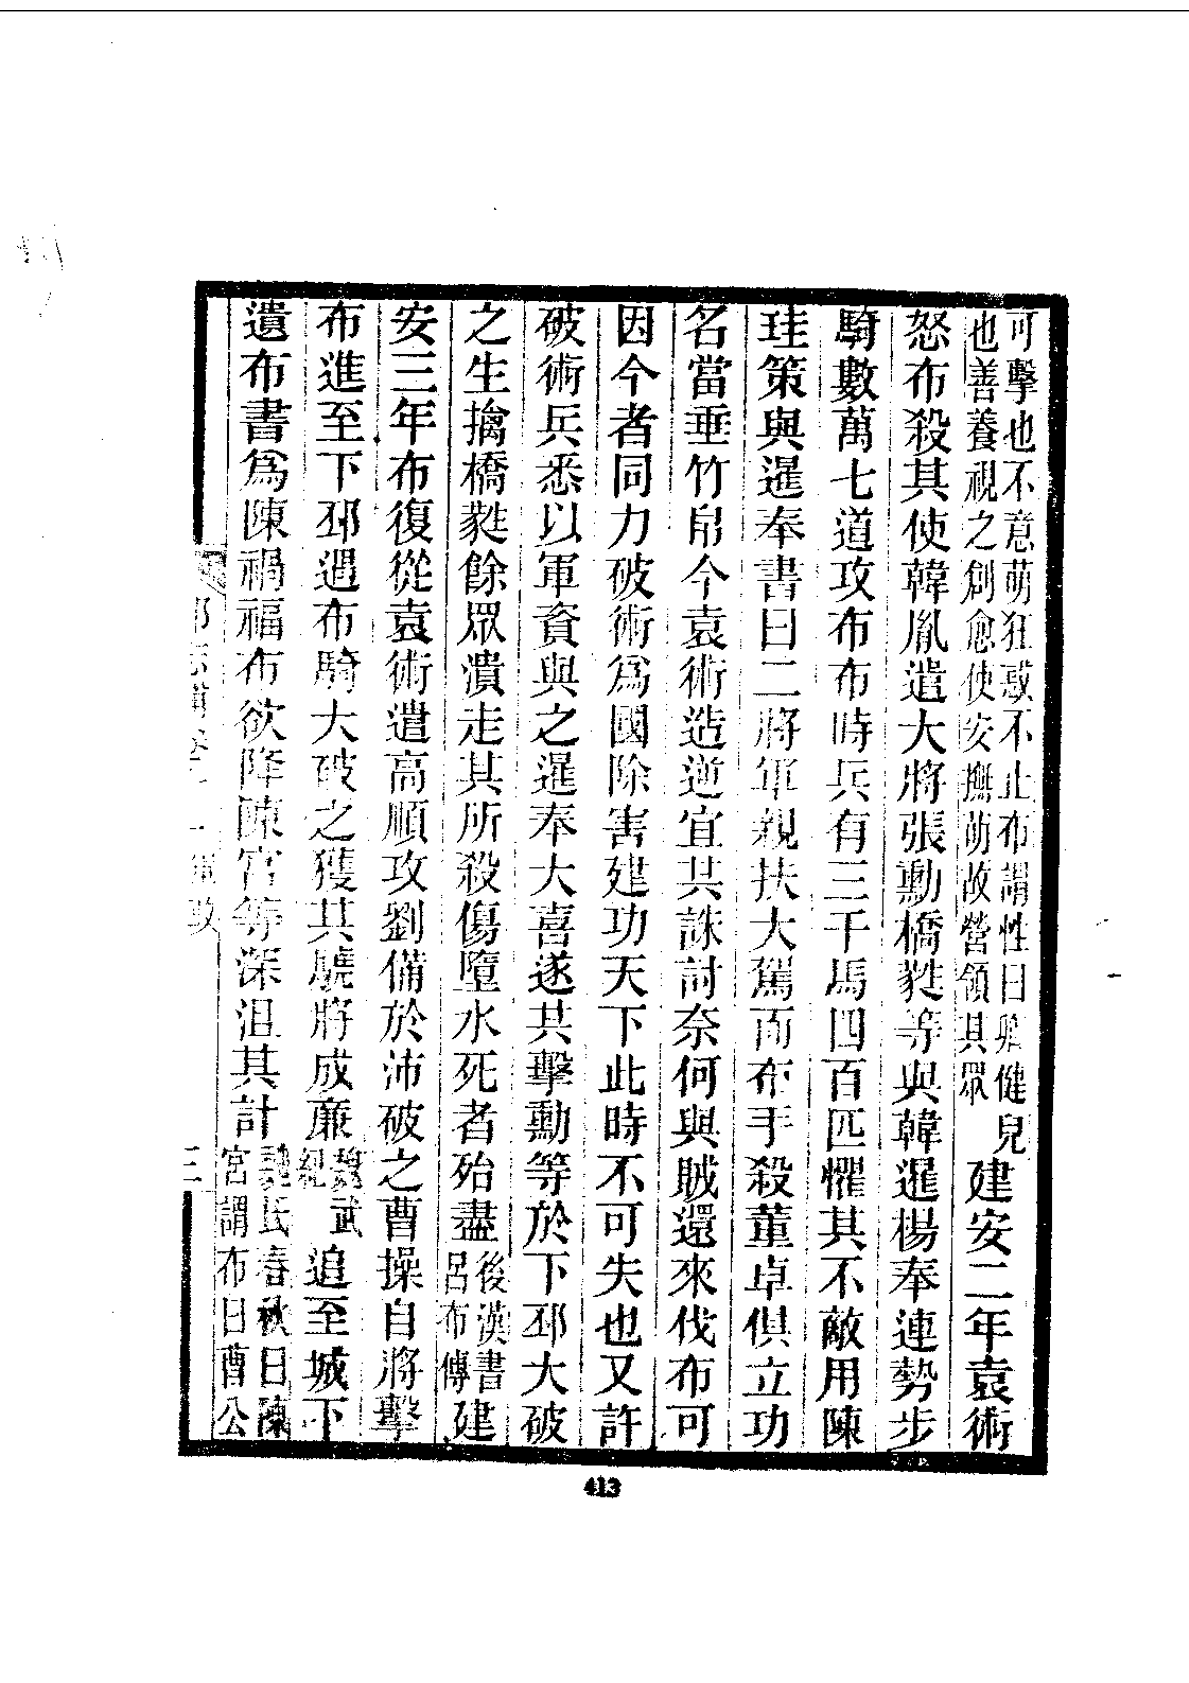 可擊也不意萌狂惑不止布謂性曰卿健兒
也善養視之創愈使安撫萌故營領其眾
建安二年袁術
怒布殺其使韓胤遣大將張勳橋蕤等與韓暹楊奉連勢步
騎數萬七道攻布布時兵有三千馬四百匹懼其不敵用陳
珪策與暹奉書曰二將軍親扶大駕而布手殺董卓俱立功
名當垂竹帛今袁術造逆宜共誅討奈何與賊還來伐布可
因今者同力破術為國除害建功天下此時不可失也又許
破術兵悉以軍資與之暹奉大喜遂共擊勳等於下邳大破
之生擒橋蕤餘眾潰走其所殺傷墮水死者殆盡
後漢書
呂布傳
建
安三年布復從袁術遣高順攻劉備於沛破之曹操自將擊
布進至下邳遇布騎大破之獲其驍將成廉
魏武
紀
追至城下
遺布書為陳禍福布欲降陳宮等深沮其計
魏氏春秋曰陳
宮謂布曰曹公
三
413